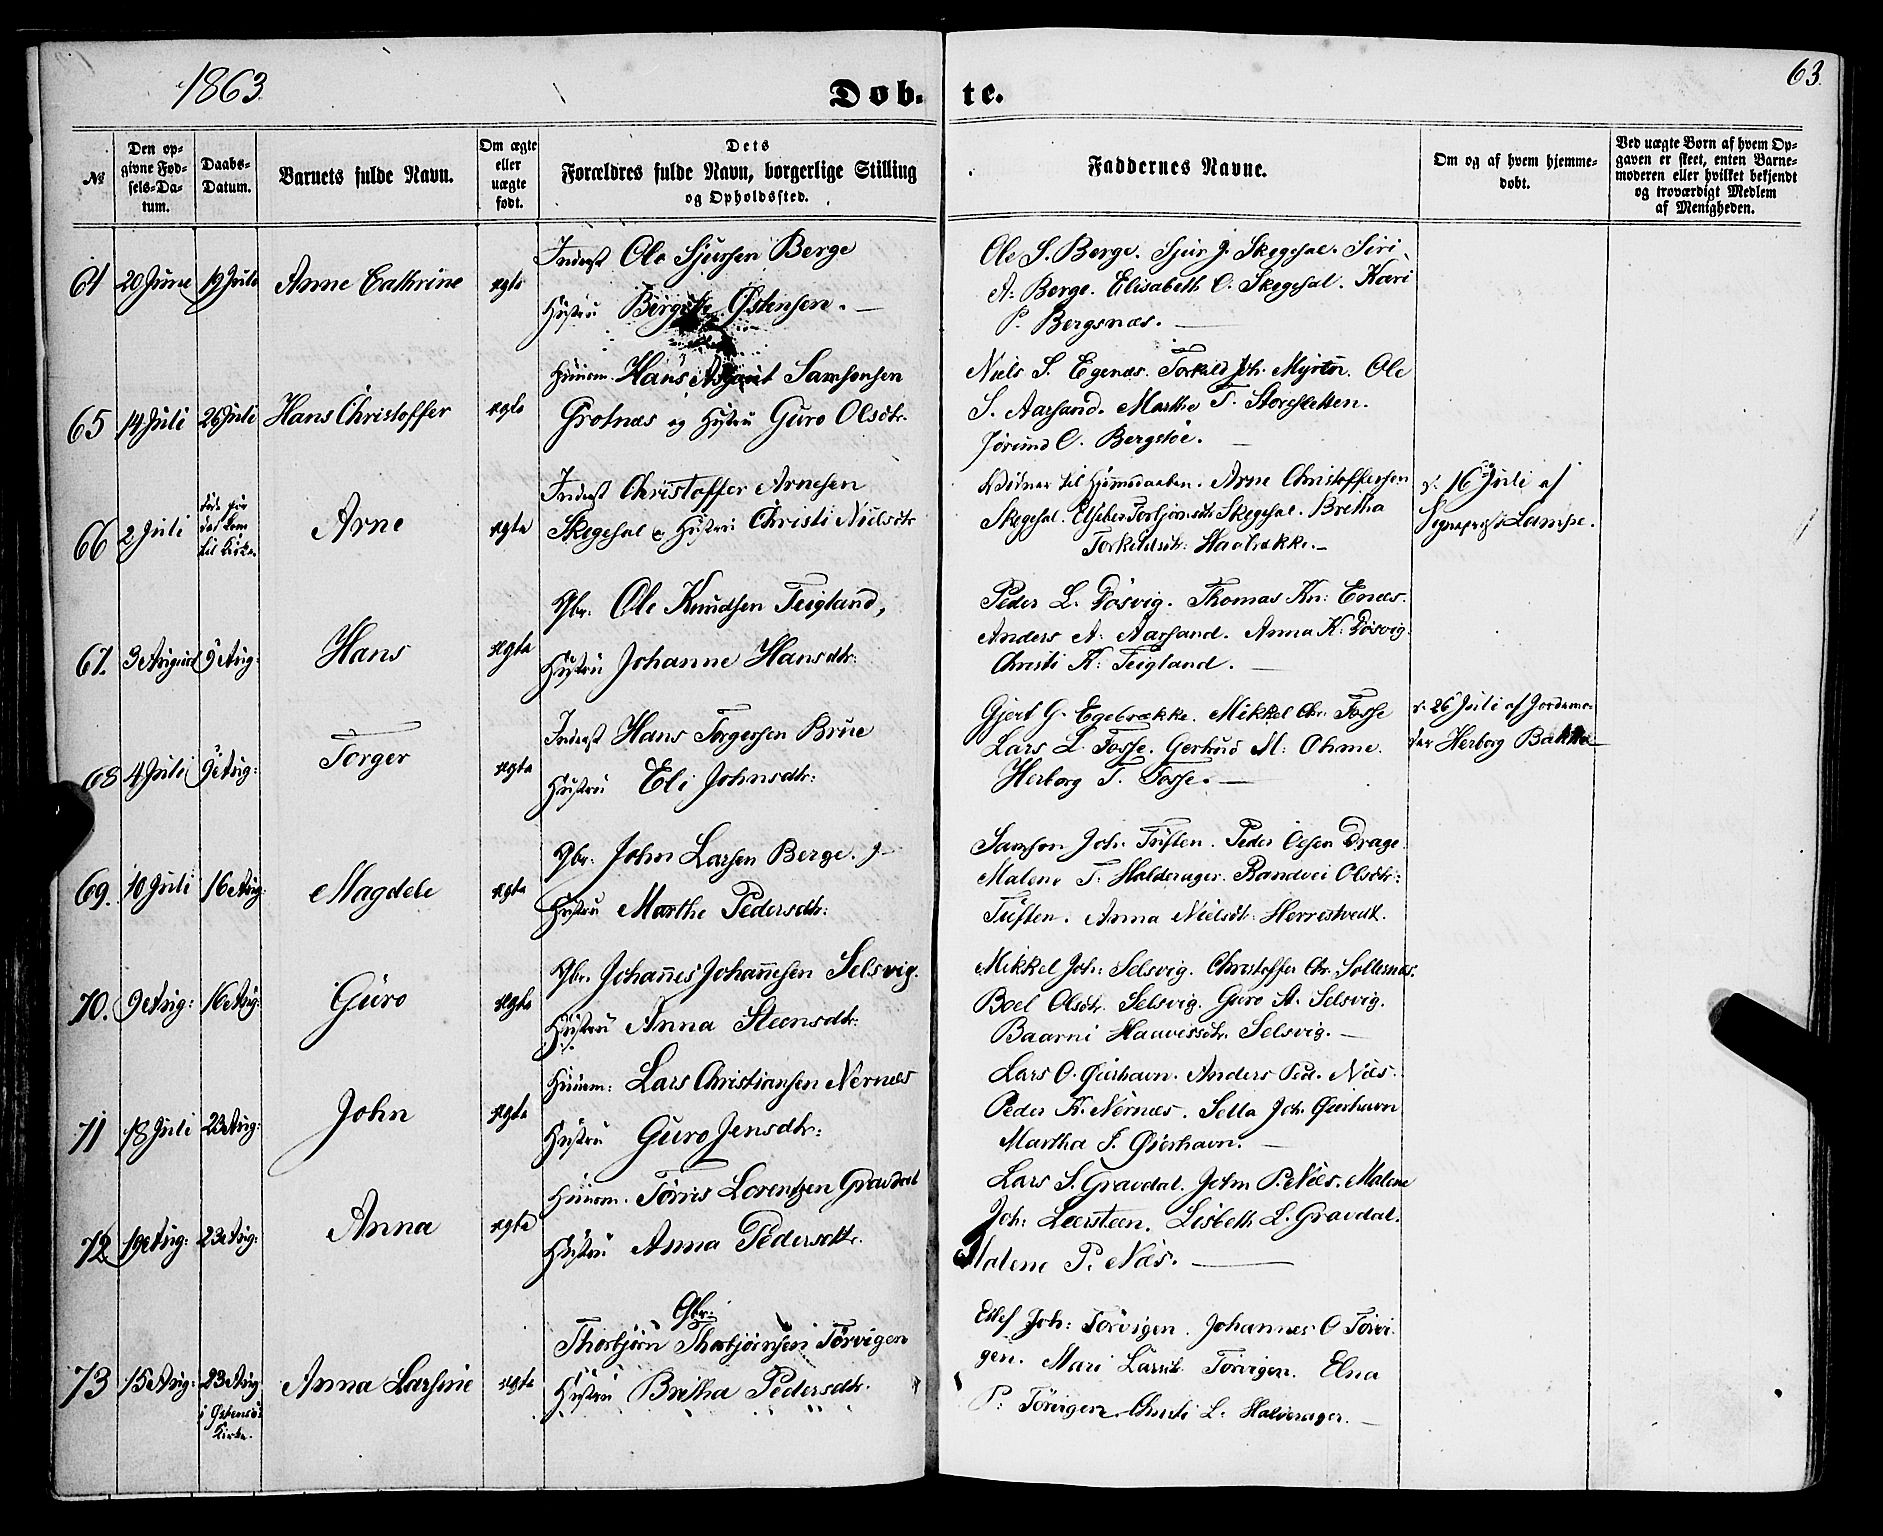 1863
Døb-
te.
63.
№
Den op-
givne Fød-
sels-Da-
tum.
Daabs-
Datum.
Barnets fulde Navn.
Om ægte
eller
uægte
født.
Dets
Forældres fulde Navn, borgerlige Stilling
og Opholdssted.
Faddernes Navne.
Om og af hvem hjemme-
døbt.
Ved uægte Børn af hvem Op-
gaven er skeet, enten Barne-
moderen eller hvilket bekjendt
og troværdigt Medlem
af Menigheden.
64 20 June 19 Juli Anne Cathrine ægte
Inderst Ole Sjursen Berge
Hustru Birgitte Østensen.
Ole S. Berge. Sjur J. Skegesal. Siri
A. Berge. Elisabeth O. Skegesal. Kari
P. Bergsnæs.
65 14 Juli 26 Juli Hans Christoffer ægte
Huusm. Hans Samsonsen
Grotnæs og Hustru Guro Olsdtr.
Niels S. Egenæs. Torkild Joh. Myrtun. Ole
S. Aarsand. Marthe T. Storesletten.
Jørund O. Bergstøe.
66 2 Juli
til Kirke. Arne ægte
Inderst Christoffer Arnesen
Skegesal og Hustru Christi Nielsdtr
Vidner til Hjemmedaaben. Arne Christoffersen
Skegesal. Torbjørnsdtr Skegesal. Bretha
Torkildsdtr: Haabrække.
d. 16 Juli af
Sognepræst Lampe.
67. 3 August 9 Aug: Hans ægte
Gbr. Ole Knudsen Teigland,
Hustru Johanne Hansdtr:
Peder L. Døsvig. Thomas Kn: Enæs.
Anders A: Aarsand. Anna K: Døsvig
Christi K: Teigland.
68 4 Juli 9 Aug: Torger ægte
Inderst Hans Torgersen Brue
Hustru Eli Johnsdtr:
Gjert G. Egebrække. Mikkel Chr. Fosse
Lars L. Fosse. Gertrud M: Ohme.
Herborg T. Fosse.
d. 26 Juli af Jordemo-
der Herborg Bakke
69. 10 Juli 16 Aug: Magdele ægte
Gbr: John Larsen Berge.
Hustru Marthe Pedersdtr:
Samson Joh. Tuften. Peder Olsen Drage
Malene T. Halderager. Randvei Olsdtr:
Tuften. Anna Nielsdtr: Herrestvedt.
70. 9 Aug: 16 Aug: Guro ægte
Gbr. Johannes Johannesen Selsvig.
Hustru Anna Steensdtr:
Mikkel Joh: Selsvig. Christoffer Chr. Soltesnæs.
Boel Olsdtr. Selsvig. Guro A. Selsvig.
Baarni Haavisdtr. Selsvig.
71 18 Juli 23 Aug: John ægte
Huusm: Lars Christiansen Nernæs
Hustru Guro Jensdtr:
Lars O. Øierhavn. Anders Ped. Næs.
Peder K. Nernæs. Sella Joh. Øierhavn
Martha J. Øierhavn.
72 19 Aug: 23 Aug: Anna ægte
Huusm. Tørris Lorentzen Gravdal
Hustru Anna Pedersdtr.
Lars S. Gravdal. John P. Næs. Malene
Joh: Leersteen. Lisbeth L. Gravdal.
Malene P. Næs.
73 15 Aug: 23 Aug
i Østensø
Kirke. Anna Larsine ægte
Gbr:
Thorbjørn Thorbjørnsen Tørvigen
Hustru Bretha Pedersdtr.
Joh: Tørvigen. Johannes O Tørvi-
gen. Mari Larsd. Tørvigen. Elna
P: Tørvigen Christi L. Halderager.